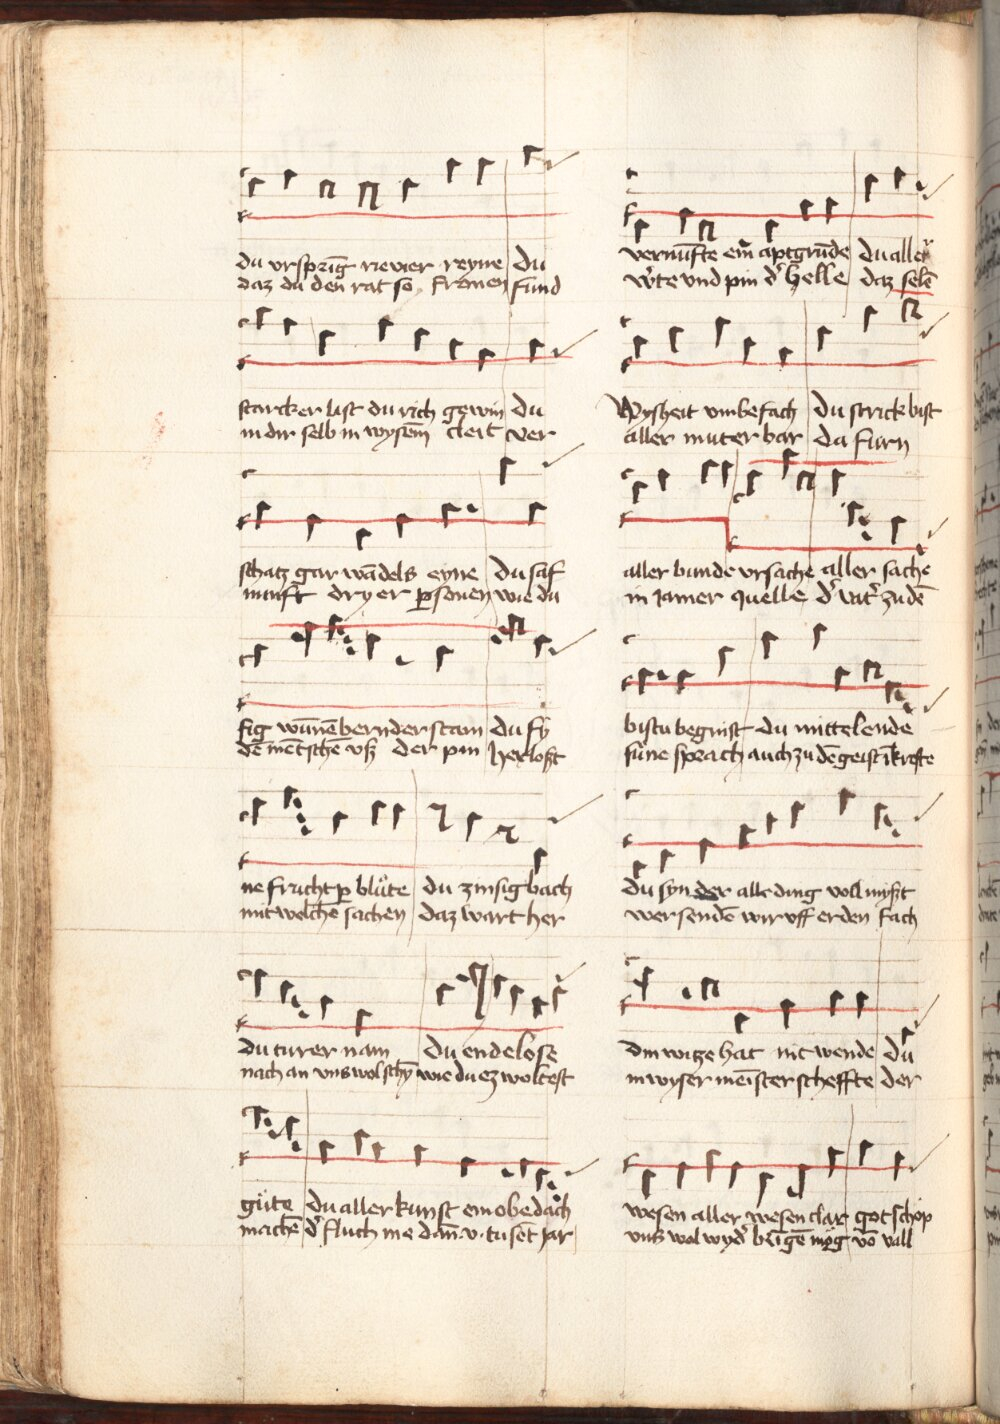 du ursprīg rievier reyne du
daz du den rat so fronen fund
starcker last du rich gewin du
in dir selb in wysem cleit ver
schatz gar wādels eyne du saf
nunft dryer psonen wie du
fig wūnēbernder stam du fy
dē mētschē vß der pin herlost
ne frucht p blüte du zinsig bach
mit welchē sachen daz wart her
du turer nam du endelose
nach an vns wol schȳ wie du ez woltest
güte du aller kunst ein obedach
machē d' fluch me dañ .v. tusēt jar
vernūfte ein aptgrūde du aller
w'te vnd pin d' helle daz selē
Wysheit vmbefach du strick bist
aller muter bar da furn
aller bunde vrsache aller sache
in jamer quelle d' vat' zu dē
bistu begnist du mittelende
sūne sprach auch zu dē geist ī krefte
du syn der alle ding vollmyßt
wer sendē wir vff erden fach
din witze hat nit wende du
in wyser meister scheffte der
wesen aller wesen clar got schöp
vns wol wyd' brīgē mög vō vall